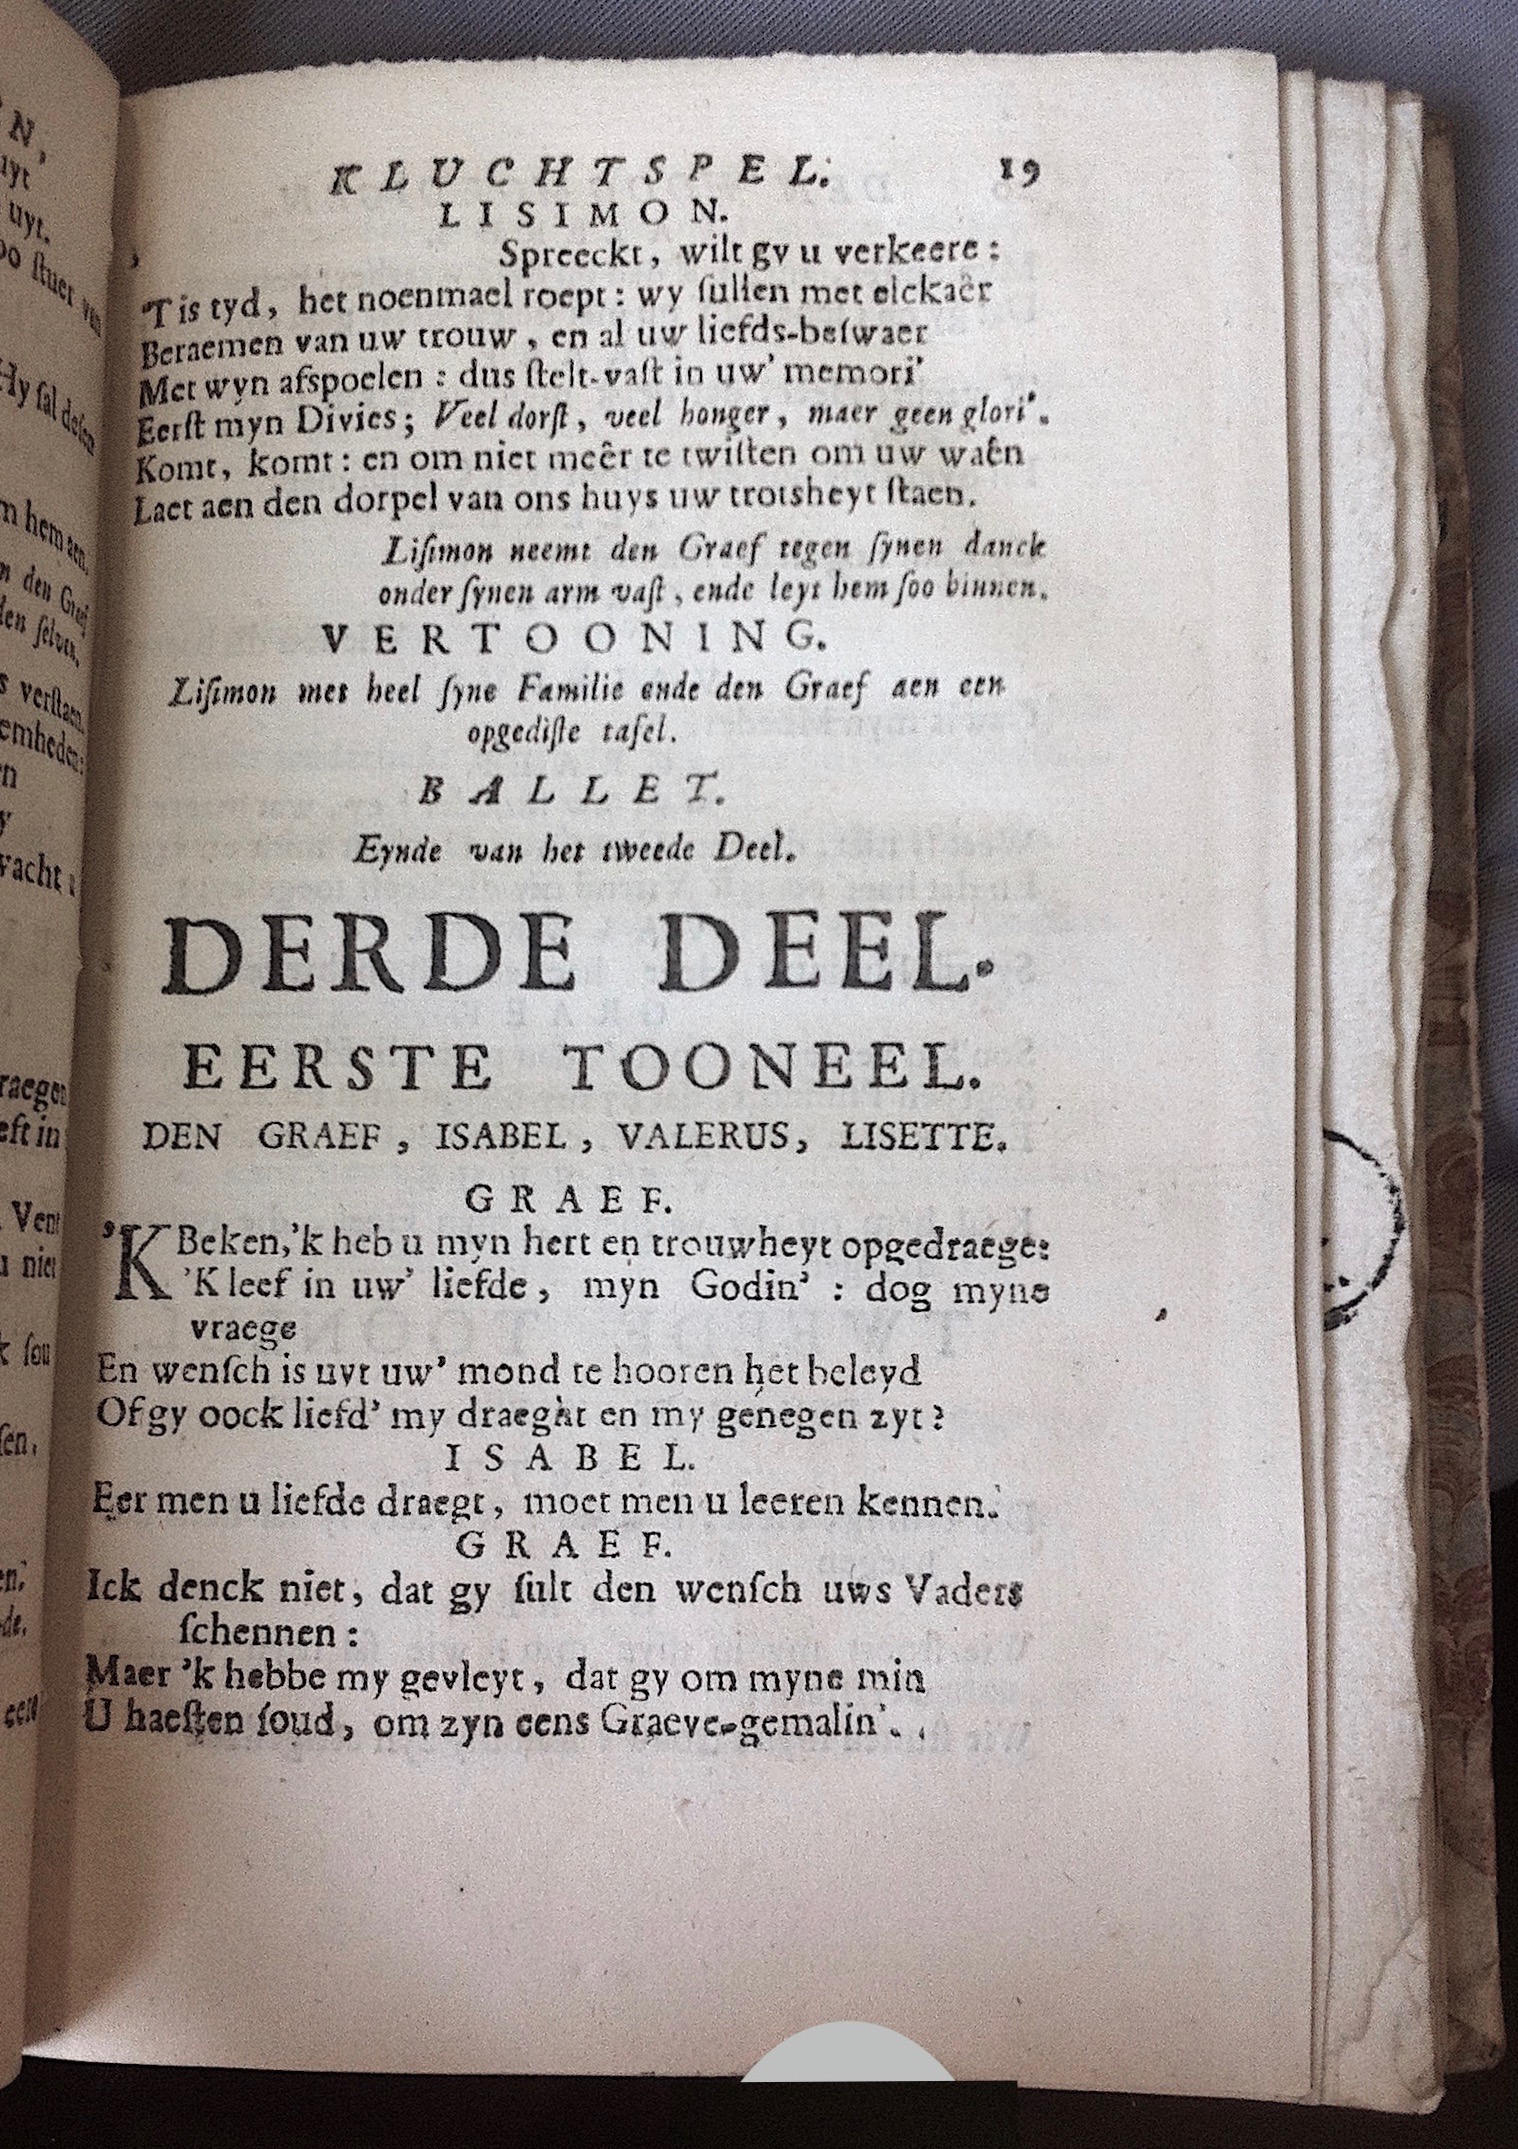 KLUCHTSPEL. 19
LISIMON.
Spreeckt, wilt gy u verkeere:
'T is tyd, het noenmael roept: wy ſullen met elckaêr
Beraemen van uw trouw, en al uw liefds-beſwaer
Met wyn afspoelen: dus ſtelt-vaſt in uw' memori'
Eerſt myn Divies; Veel dorſt, veel honger, maer geen glori'.
Komt, komt: en om niet meêr te twiſten om uw waên
Laet aen den dorpel van ons huys uw trotsheyt ſtaen.
Liſimon neemt den Graef tegen ſynen danck
onder ſynen arm vaſt, ende leyt hem ſoo binnen.
VERTOONING.
Liſimon met heel ſyne Familie ende den Graef aen een
opgediſte tafel.
BALLET.
Eynde van het tweede Deel.
DERDE DEEL.
EERSTE TOONEEL.
DEN GRAEF, ISABEL, VALERUS, LISETTE.
GRAEF.
'K Beken,'k heb u myn hert en trouwheyt opgedraege:
'K leef in uw' liefde, myn Godin': dog myne
vraege
En wenſch is uyt uw' mond te hooren het beleyd
Of gy oock liefd' my draeght en my genegen zyt?
ISABEL.
Eer men u liefde draegt, moet men u leeren kennen.
GRAEF.
Ick denck niet, dat gy ſult den wenſch uws Vaders
ſchennen:
Maer 'k hebbe my gevleyt, dat gy om myne min
U haeſten ſoud, om zyn eens Graeve-gemalin'.